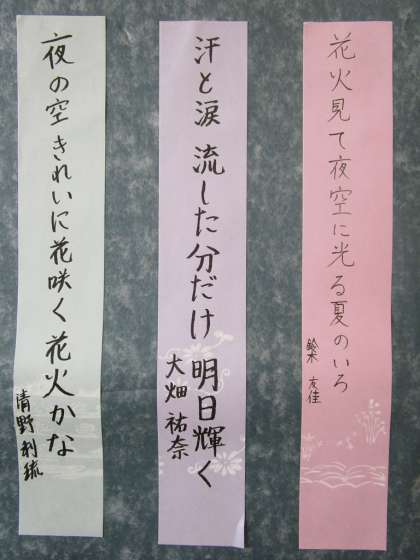 花火見て夜空に光る夏のいろ
鈴木 友佳
汗と涙 流した分だけ 明日輝く
大畑 祐奈
夜の空きれいに花咲く花火かな
清野 利琉